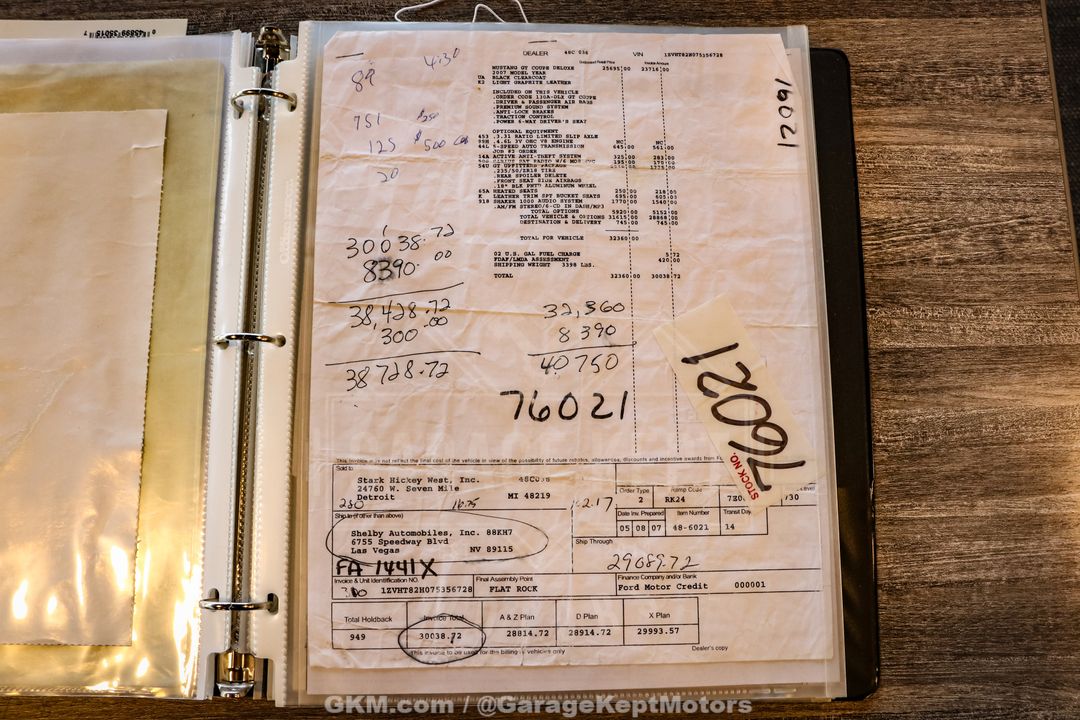 DEALER 48C 036 VIN 1ZVHT82H075356728
MUSTANG GT COUPE DELUXE 25695 00 23716 00
2007 MODEL YEAR
UA BLACK CLEARCOAT
K2 LIGHT GRAPHITE LEATHER
INCLUDED ON THIS VEHICLE
.ORDER CODE 130A-DLX GT COUPE
.DRIVER & PASSENGER AIR BAGS
.PREMIUM SOUND SYSTEM
.ANTI-LOCK BRAKES
.TRACTION CONTROL
.POWER 6-WAY DRIVER'S SEAT
OPTIONAL EQUIPMENT
453 .3.31 RATIO LIMITED SLIP AXLE
99H .4.6L 3V OHC V8 ENGINE NC NC
44L 5-SPEED AUTO TRANSMISSION 645 00 561 00
JOB #7 ORDER
14A ACTIVE ANTI-THEFT SYSTEM 325 00 283 00
SIRIUS SAT RADIO W/6 MOS SVC 195 00 170 00
54U GT UPFITTERS PACKAGE
.235/50/ZR18 TIRES
.REAR SPOILER DELETE
.FRONT SEAT SIDE AIRBAGS
.18" BLK PNTD ALUMINUM WHEEL
65A HEATED SEATS 250 00 218 00
K LEATHER TRIM SPT BUCKET SEATS 695 00 605 00
918 SHAKER 1000 AUDIO SYSTEM 1770 00 1540 00
.AM/FM STEREO/6-CD IN DASH/MP3
TOTAL OPTIONS 5920 00 5152 00
TOTAL VEHICLE & OPTIONS 31615 00 28868 00
DESTINATION & DELIVERY 745 00 745 00
TOTAL FOR VEHICLE 32360 00
02 U.S. GAL FUEL CHARGE 5 72
FDAF/LMDA ASSESSMENT 420 00
SHIPPING WEIGHT 3398 LBS.
TOTAL 32360 00 30038 72
89 4:30
751
125 $500
20
12091
30038.72
8390.00
38,428.72
300.00
38728.72
32,360
8390
40750
76021
76021
STOCK NO.
This invoice may not reflect the final cost of the vehicle in view of the possibility of future rebates, allowances, discounts and incentive awards from
Sold to
Stark Hickey West, Inc. 48C036
24760 W. Seven Mile
Detroit MI 48219
280 16.75 2.17
Order Type Ramp Code
2 RK24
Ship to (if other than above)
Shelby Automobiles, Inc. 88KH7
6755 Speedway Blvd
Las Vegas NV 89115
Date Inv. Prepared Item Number Transit Days
05 08 07 48-6021 14
Ship Through
FA 1441X
29089.72
Invoice & Unit Identification NO. Final Assembly Point Finance Company and/or Bank
1ZVHT82H075356728 FLAT ROCK Ford Motor Credit 000001
Total Holdback Invoice Total A & Z Plan D Plan X Plan
949 30038.72 28814.72 28914.72 29993.57
This invoice to be used for the billing of vehicles only Dealer's copy
GKM.com / @GarageKeptMotors